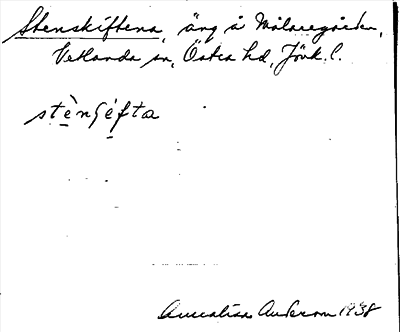 Stenskiftena, äng å Målaregården,
Vetlanda sn, Östra hd, Jönk. l.
stènʃéfta
Annalisa Anderson 1938